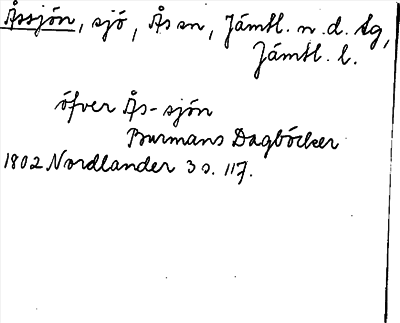 Åssjön, sjö, Ås sn, Jämtl. n. d. tg,
Jämtl. l.
öfver Ås-sjön
Burmans Dagböcker
1802 Nordlander 3 s. 117.